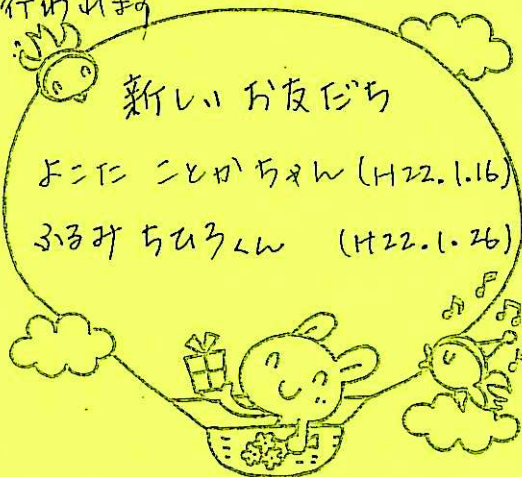 行われます
新しい お友だち
よこた ことかちゃん (H22.1.16)
ふるみ ちひろくん (H22.1.26)